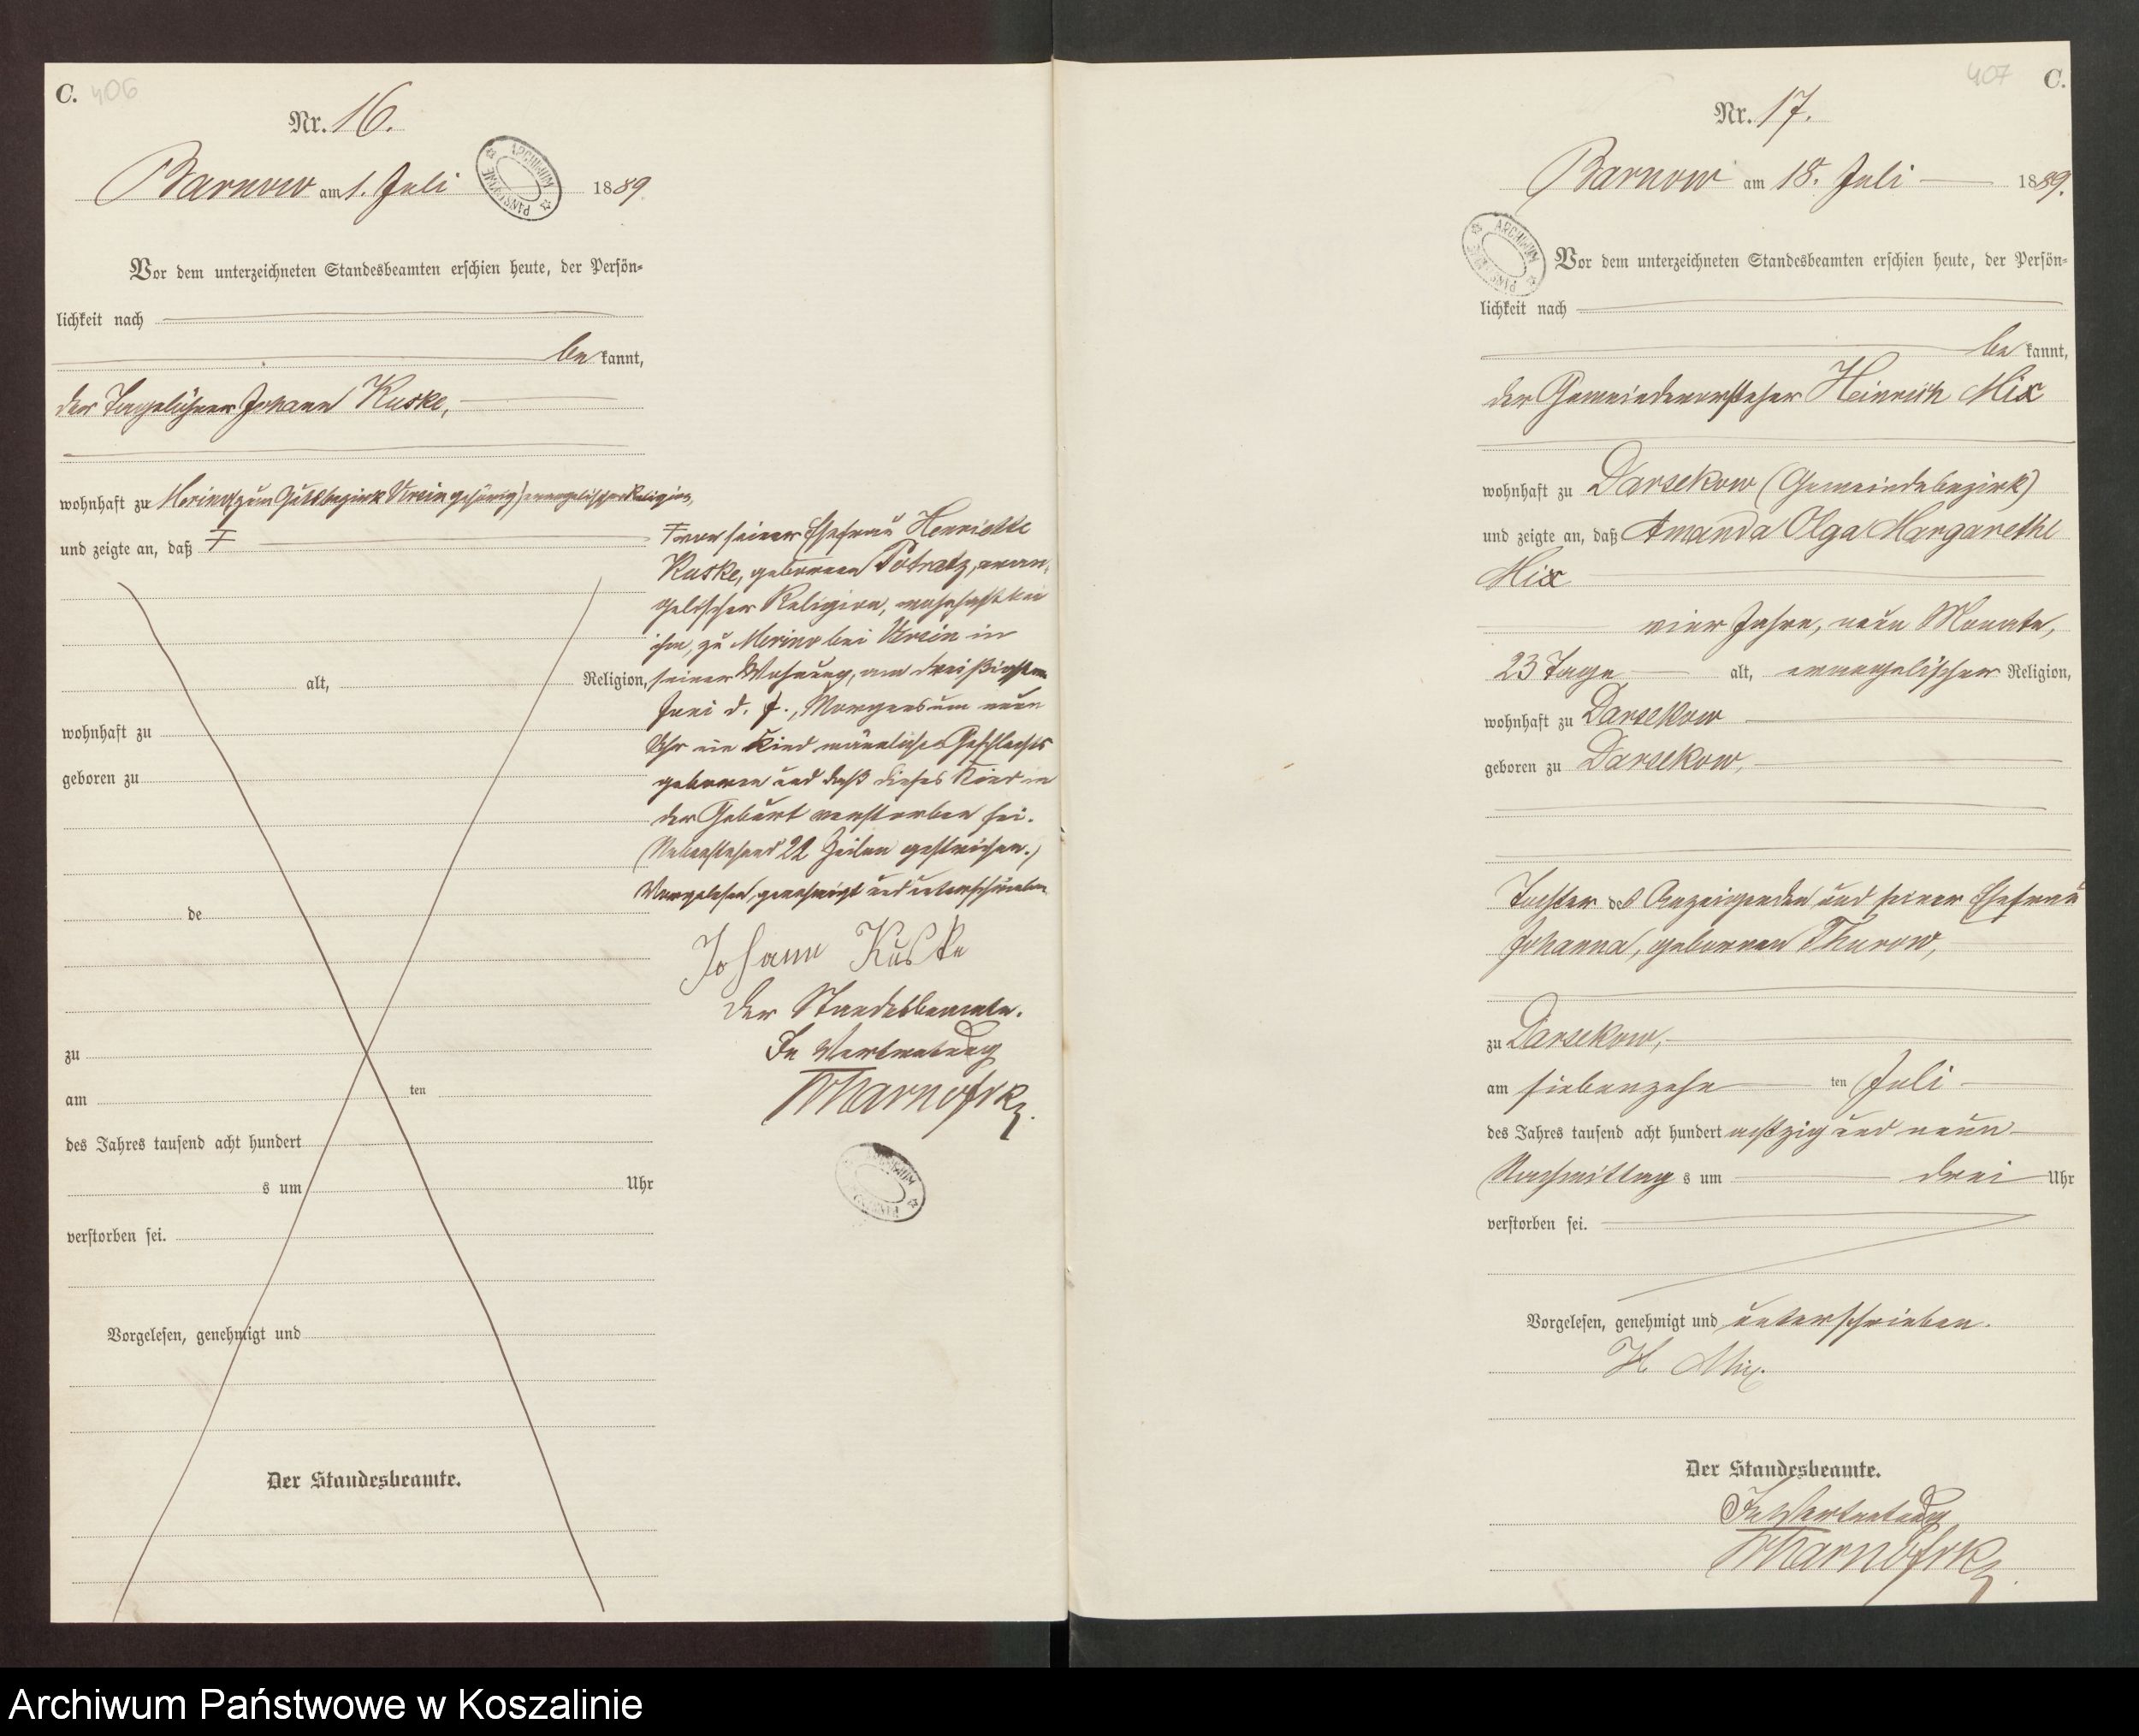 C. 406
Nr. 16.
Barnow am 1. Juli 1889
ARCHIWUM PAŃSTWOWE
Vor dem unterzeichneten Standesbeamten erschien heute, der Persön-
lichkeit nach
bekannt,
der Tagelöhner Johann Kuske,
wohnhaft zu Merino (zum Gutsbezirk Versin gehörig) evangelischer Religion,
und zeigte an, daß
alt, Religion,
wohnhaft zu
geboren zu
de
zu
am ten
des Jahres tausend acht hundert
s um Uhr
verstorben sei.
Vorgelesen, genehmigt und
Der Standesbeamte.
von seiner Ehefrau Henriette
Kuske, geborenen Potratz, evan-
gelischer Religion, wohnhaft bei
ihm, zu Merino bei Versin in
seiner Wohnung, am dreißigsten
Juni d. J., Morgens um neun
Uhr ein Kind männliches Geschlechts
geboren und daß dieses Kind in
der Geburt verstorben sei.
(Nebenstehend 22 Zeilen gestrichen.)
Vorgelesen, genehmigt und unterschrieben
Johann Kuske
Der Standesbeamte.
In Vertretung
ARCHIWUM PAŃSTWOWE
407 C.
Nr. 17.
Barnow am 18. Juli 1889.
ARCHIWUM PAŃSTWOWE
Vor dem unterzeichneten Standesbeamten erschien heute, der Persön-
lichkeit nach
bekannt,
der Gemeindevorsteher Heinrich Mix
wohnhaft zu Darsekow (Gemeindebezirk)
und zeigte an, daß Amanda Olga Margarethe
Mix
vier Jahre, neun Monate,
23 Tage alt, evangelischer Religion,
wohnhaft zu Darsekow
geboren zu Darsekow,
Tochter des Anzeigenden und seiner Ehefrau
Johanna, geborenen Thurow,
zu Darsekow,
am siebenzehnten Juli
des Jahres tausend acht hundert achtzig und neun
Nachmittags um drei Uhr
verstorben sei.
Vorgelesen, genehmigt und unterschrieben.
H Mix.
Der Standesbeamte.
In Vertretung
Archiwum Państwowe w Koszalinie